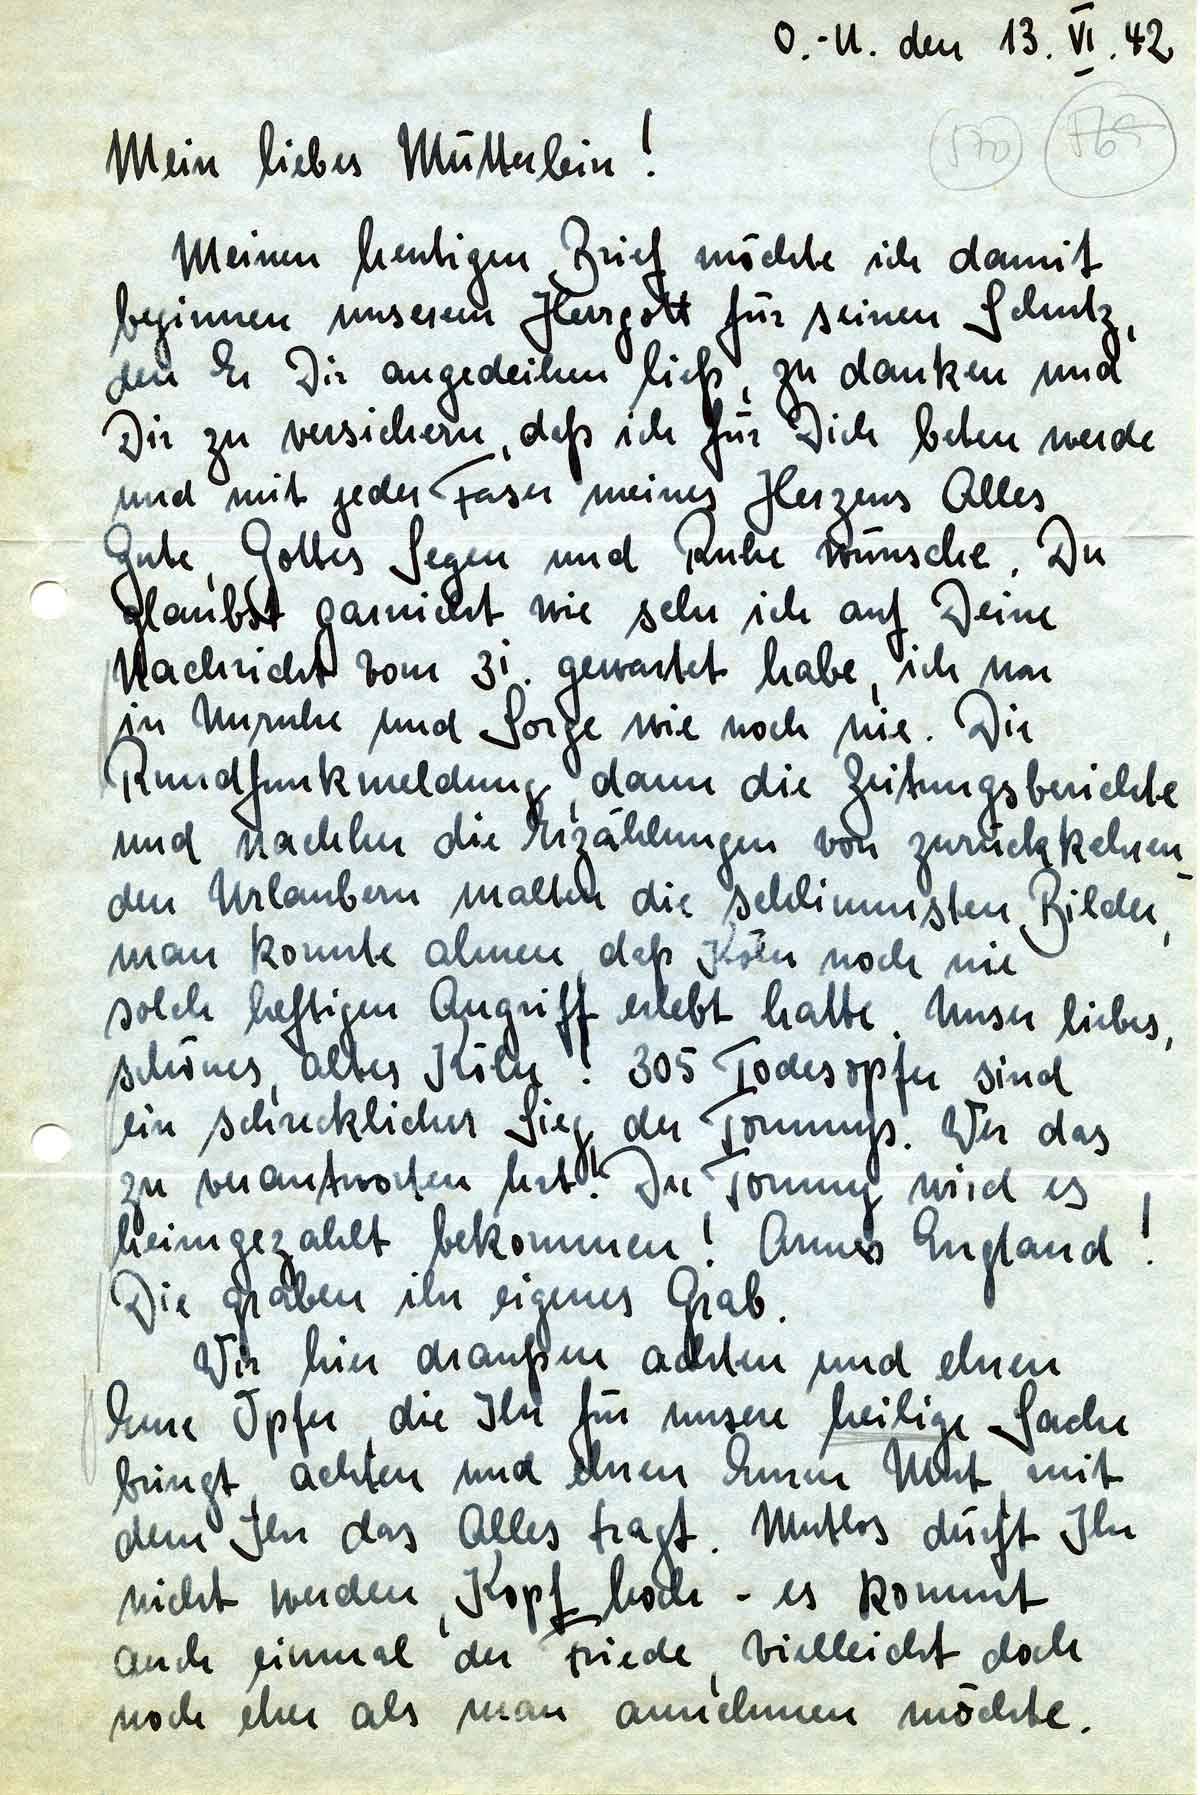 O.-U. den 13. VI. 42
570 569
Mein liebes Mütterlein!
Meinen heutigen Brief möchte ich damit
beginnen unserem Herrgott für seinen Schutz,
den Er Dir angedeihen ließ, zu danken und
Dir zu versichern, daß ich für Dich beten werde
und mit jeder Faser meines Herzens Alles
Gute, Gottes Segen und Ruhe wünsche. Du
glaubst garnicht wie sehr ich auf Deine
Nachricht vom 31. gewartet habe, ich war
in Unruhe und Sorge wie noch nie. Die
Rundfunkmeldung, dann die Zeitungsberichte
und nachher die Erzählungen von zurückkehren-
den Urlaubern malten die schlimmsten Bilder,
man konnte ahnen, daß Köln noch nie
solch heftigen Angriff erlebt hatte. Unser liebes,
schönes, altes Köln! 305 Todesopfer sind
ein schrecklicher Sieg der Tommys. Wer das
zu verantworten hat! Der Tommy wird es
heimgezahlt bekommen! Armes England!
Die graben ihr eigenes Grab.
Wir hier draußen achten und ehren
Eure Opfer, die Ihr für unsere heilige Sache
bringt, achten und ehren Euren Mut, mit
dem Ihr das Alles tragt. Mutlos dürft Ihr
nicht werden, Kopf hoch - es kommt
auch einmal der Friede, vielleicht doch
noch eher als man annehmen möchte.